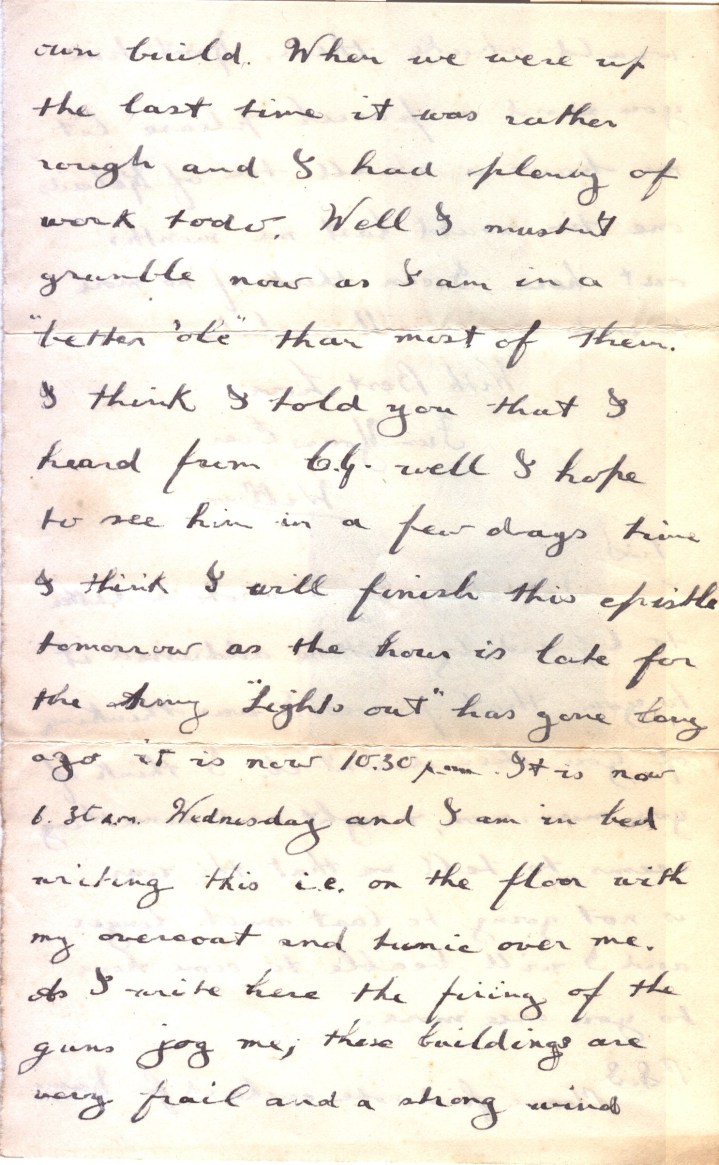 own build. When we were up
the last time it was rather
rough and I had plenty of
work todo. Well I mustn't
grumble now as I am in a
"better 'ole" than most of them.
I think I told you that I
heard from C.G. well I hope
to see him in a few days time
I think I will finish this epistle
tomorrow as the hour is late for
the Army "Lights out" has gone long
ago it is now 10.30 p.m. It is now
6.30 a.m. Wednesday and I am in bed
writing this i.e. on the floor with
my overcoat and tunic over me.
As I write here the firing of the
guns jog me; these buildings are
very frail and a strong wind